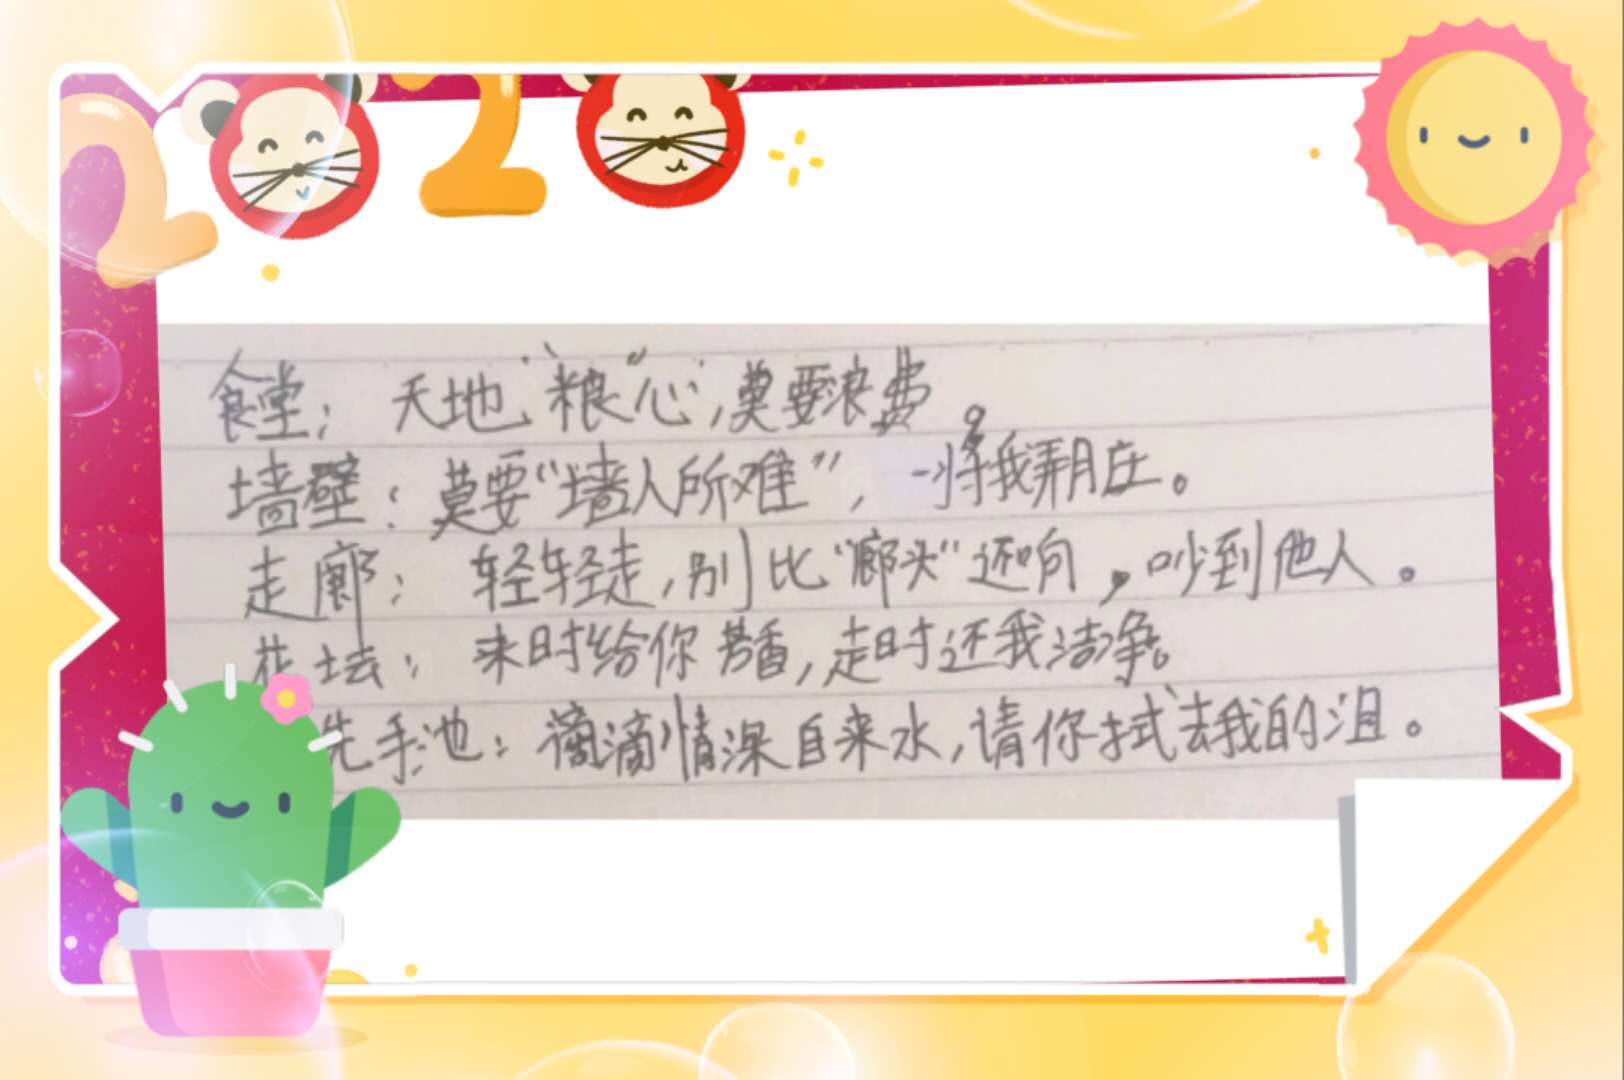 2020
食堂：天地“粮”心，莫要浪费。
墙壁：莫要“墙人所难”，将我弄脏。
走廊：轻轻走，别比“廊头”还响，吵到他人。
花坛：来时给你芳香，走时还我洁净。
洗手池：滴滴情深自来水，请你拭去我的泪。